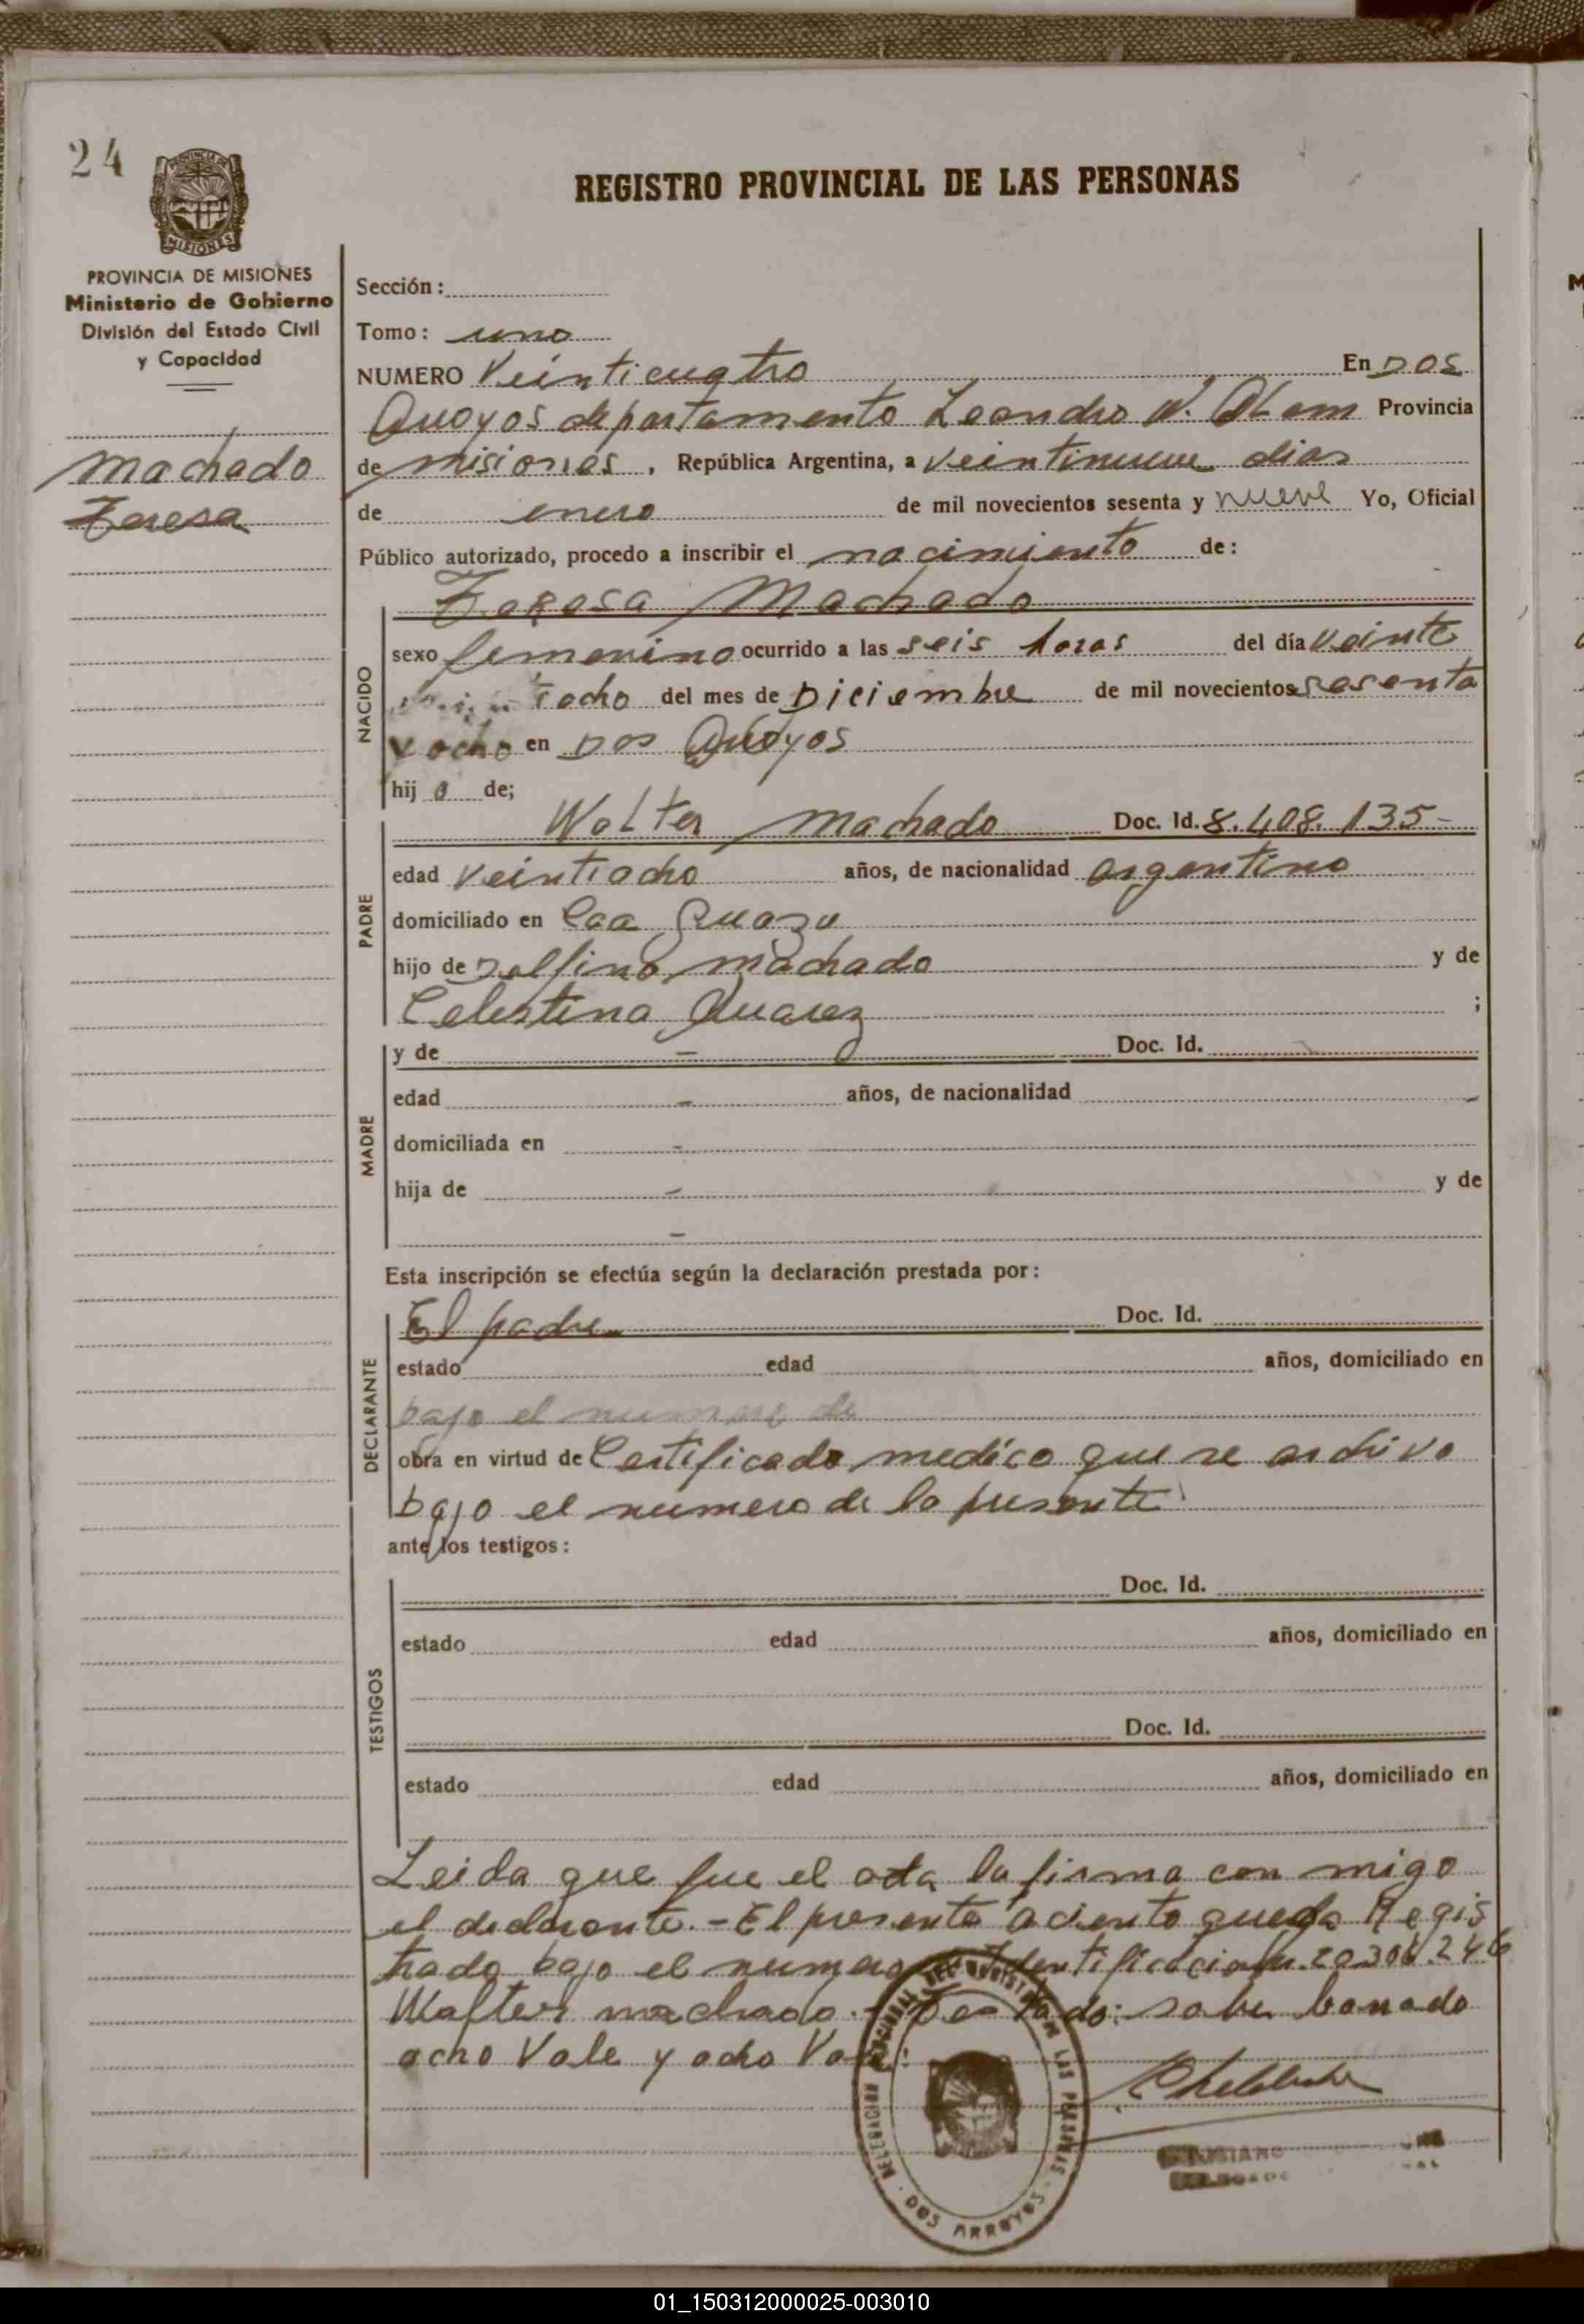 24
PROVINCIA DE
MISIONES
REGISTRO PROVINCIAL DE LAS PERSONAS
PROVINCIA DE MISIONES
Ministerio de Gobierno
División del Estado Civil
y Capacidad
Machado
Teresa
Sección:
Tomo: uno
NUMERO Veinticuatro En Dos
Arroyos departamento Leandro N. Alem Provincia
de misiones, República Argentina, a veintinueve dias
de enero de mil novecientos sesenta y nueve Yo, Oficial
Público autorizado, procedo a inscribir el nacimiento de:
Teresa Machado
NACIDO
sexo femenino ocurrido a las seis horas del día veinte
ocho del mes de Diciembre de mil novecientos sesenta
y ocho en Dos Arroyos
hij a de;
PADRE
Walter Machado Doc. Id. 8.408.135-
edad veintiocho años, de nacionalidad argentino
domiciliado en Caa Guazu
hijo de Delfino machado y de
Celestina Suarez ;
MADRE
y de - Doc. Id.
edad - años, de nacionalidad -
domiciliada en -
hija de - y de
-
Esta inscripción se efectúa según la declaración prestada por:
DECLARANTE
El padre Doc. Id.
estado edad años, domiciliado en
bajo el numero de
obra en virtud de Certificado medico que se archiva
bajo el numero de la presente
ante los testigos:
TESTIGOS
Doc. Id.
estado edad años, domiciliado en
Doc. Id.
estado edad años, domiciliado en
Leida que fue el acta la firma con migo
el declarante.-El presente aciento queda Regis
trado bajo el numero Identificacion 20306.246
Walter machado.- Testado: sobre borrado
ocho Vale y ocho Vale:
DELEGACION REGISTRO LAS PERSONAS
DOS ARROYOS
01_150312000025-003010